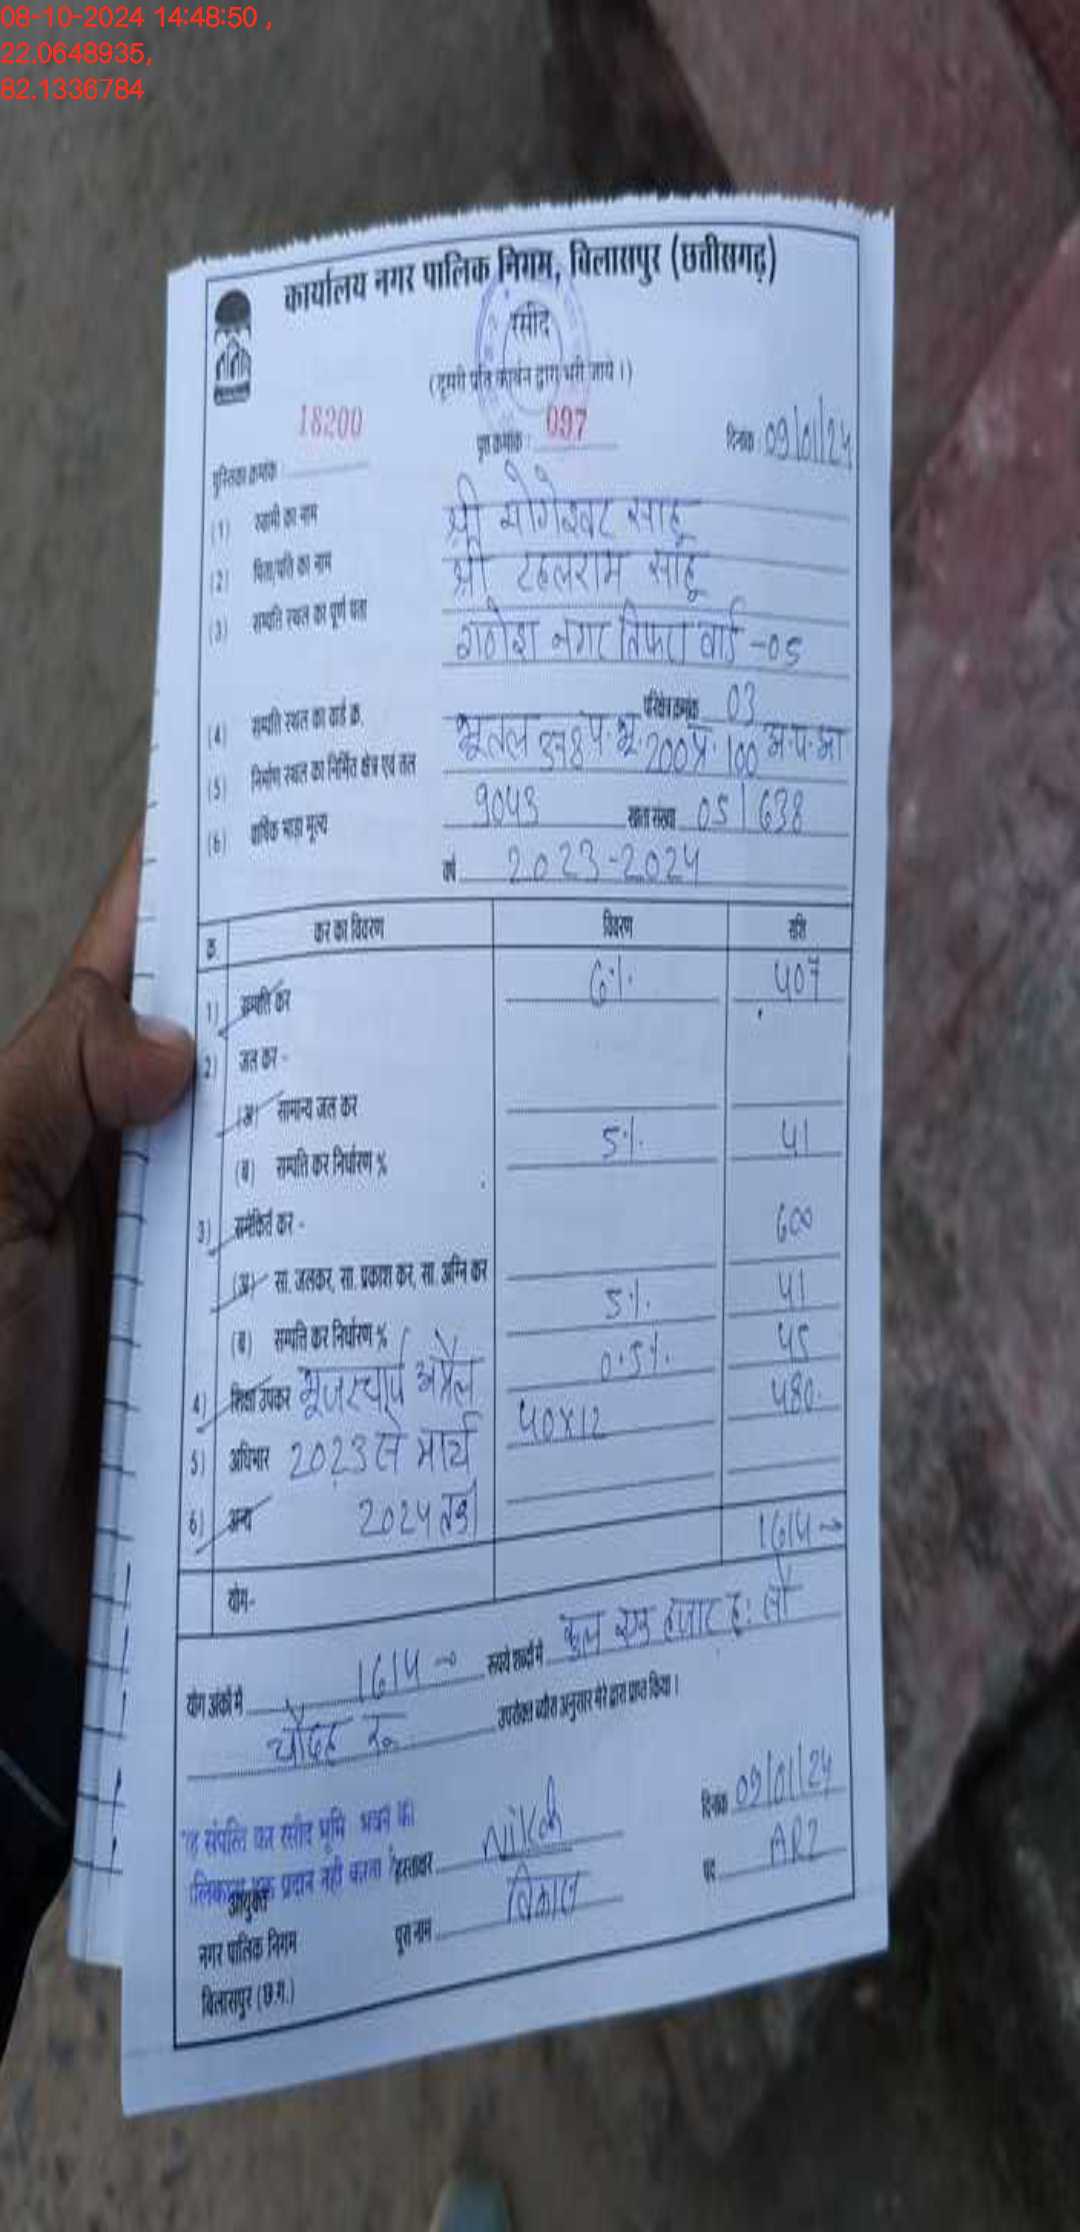 08-10-2024 14:48:50 ,
22.0648935,
82.1336784
कार्यालय नगर पालिक निगम, बिलासपुर (छत्तीसगढ़)
रसीद
(दूसरी प्रति कार्बन द्वारा भरी जाये।)
पुस्तिका क्रमांक : 18200 पृष्ठ क्रमांक : 097 दिनांक 09/01/24
(1) स्वामी का नाम श्री योगेश्वर साहू
(2) पिता/पति का नाम श्री टहलराम साहू
(3) सम्पत्ति स्थल का पूर्ण पता गणेश नगर तिफरा वार्ड -05
(4) सम्पत्ति स्थल का वार्ड क्र. परिक्षेत्र क्रमांक 03
(5) निर्माण स्थल का निर्मित क्षेत्र एवं तल भूतल 578 प.भू. 200 प्र. 100 अ.प.आ
(6) वार्षिक भाड़ा मूल्य 9043 खाता संख्या 05/638
वर्ष 2023-2024
क्र. कर का विवरण विवरण राशि
1) सम्पत्ति कर 6% 407
2) जल कर -
(अ) सामान्य जल कर
(ब) सम्पत्ति कर निर्धारण % 5% 41
3) समेकित कर - 600
(अ) सा. जलकर, सा. प्रकाश कर, सा. अग्नि कर
(ब) सम्पत्ति कर निर्धारण % 5% 41
4) शिक्षा उपकर यूजरचार्ज अप्रैल 0.5% 45
5) अधिभार 2023 से मार्च 40x12 480
6) अन्य 2024 तक
योग- 1614
योग अंकों में 1614 रूपये शब्दों में कुल एक हजार छः सौ
चौदह रू उपरोक्त ब्यौरा अनुसार मेरे द्वारा प्राप्त किया।
यह संपत्ति कर रसीद भूमि भवन का
मालिकाना हक प्रदान नही करता
हस्ताक्षर दिनांक 09/01/24
आयुक्त
नगर पालिक निगम पूरा नाम विकास पद ARI
बिलासपुर (छ.ग.)